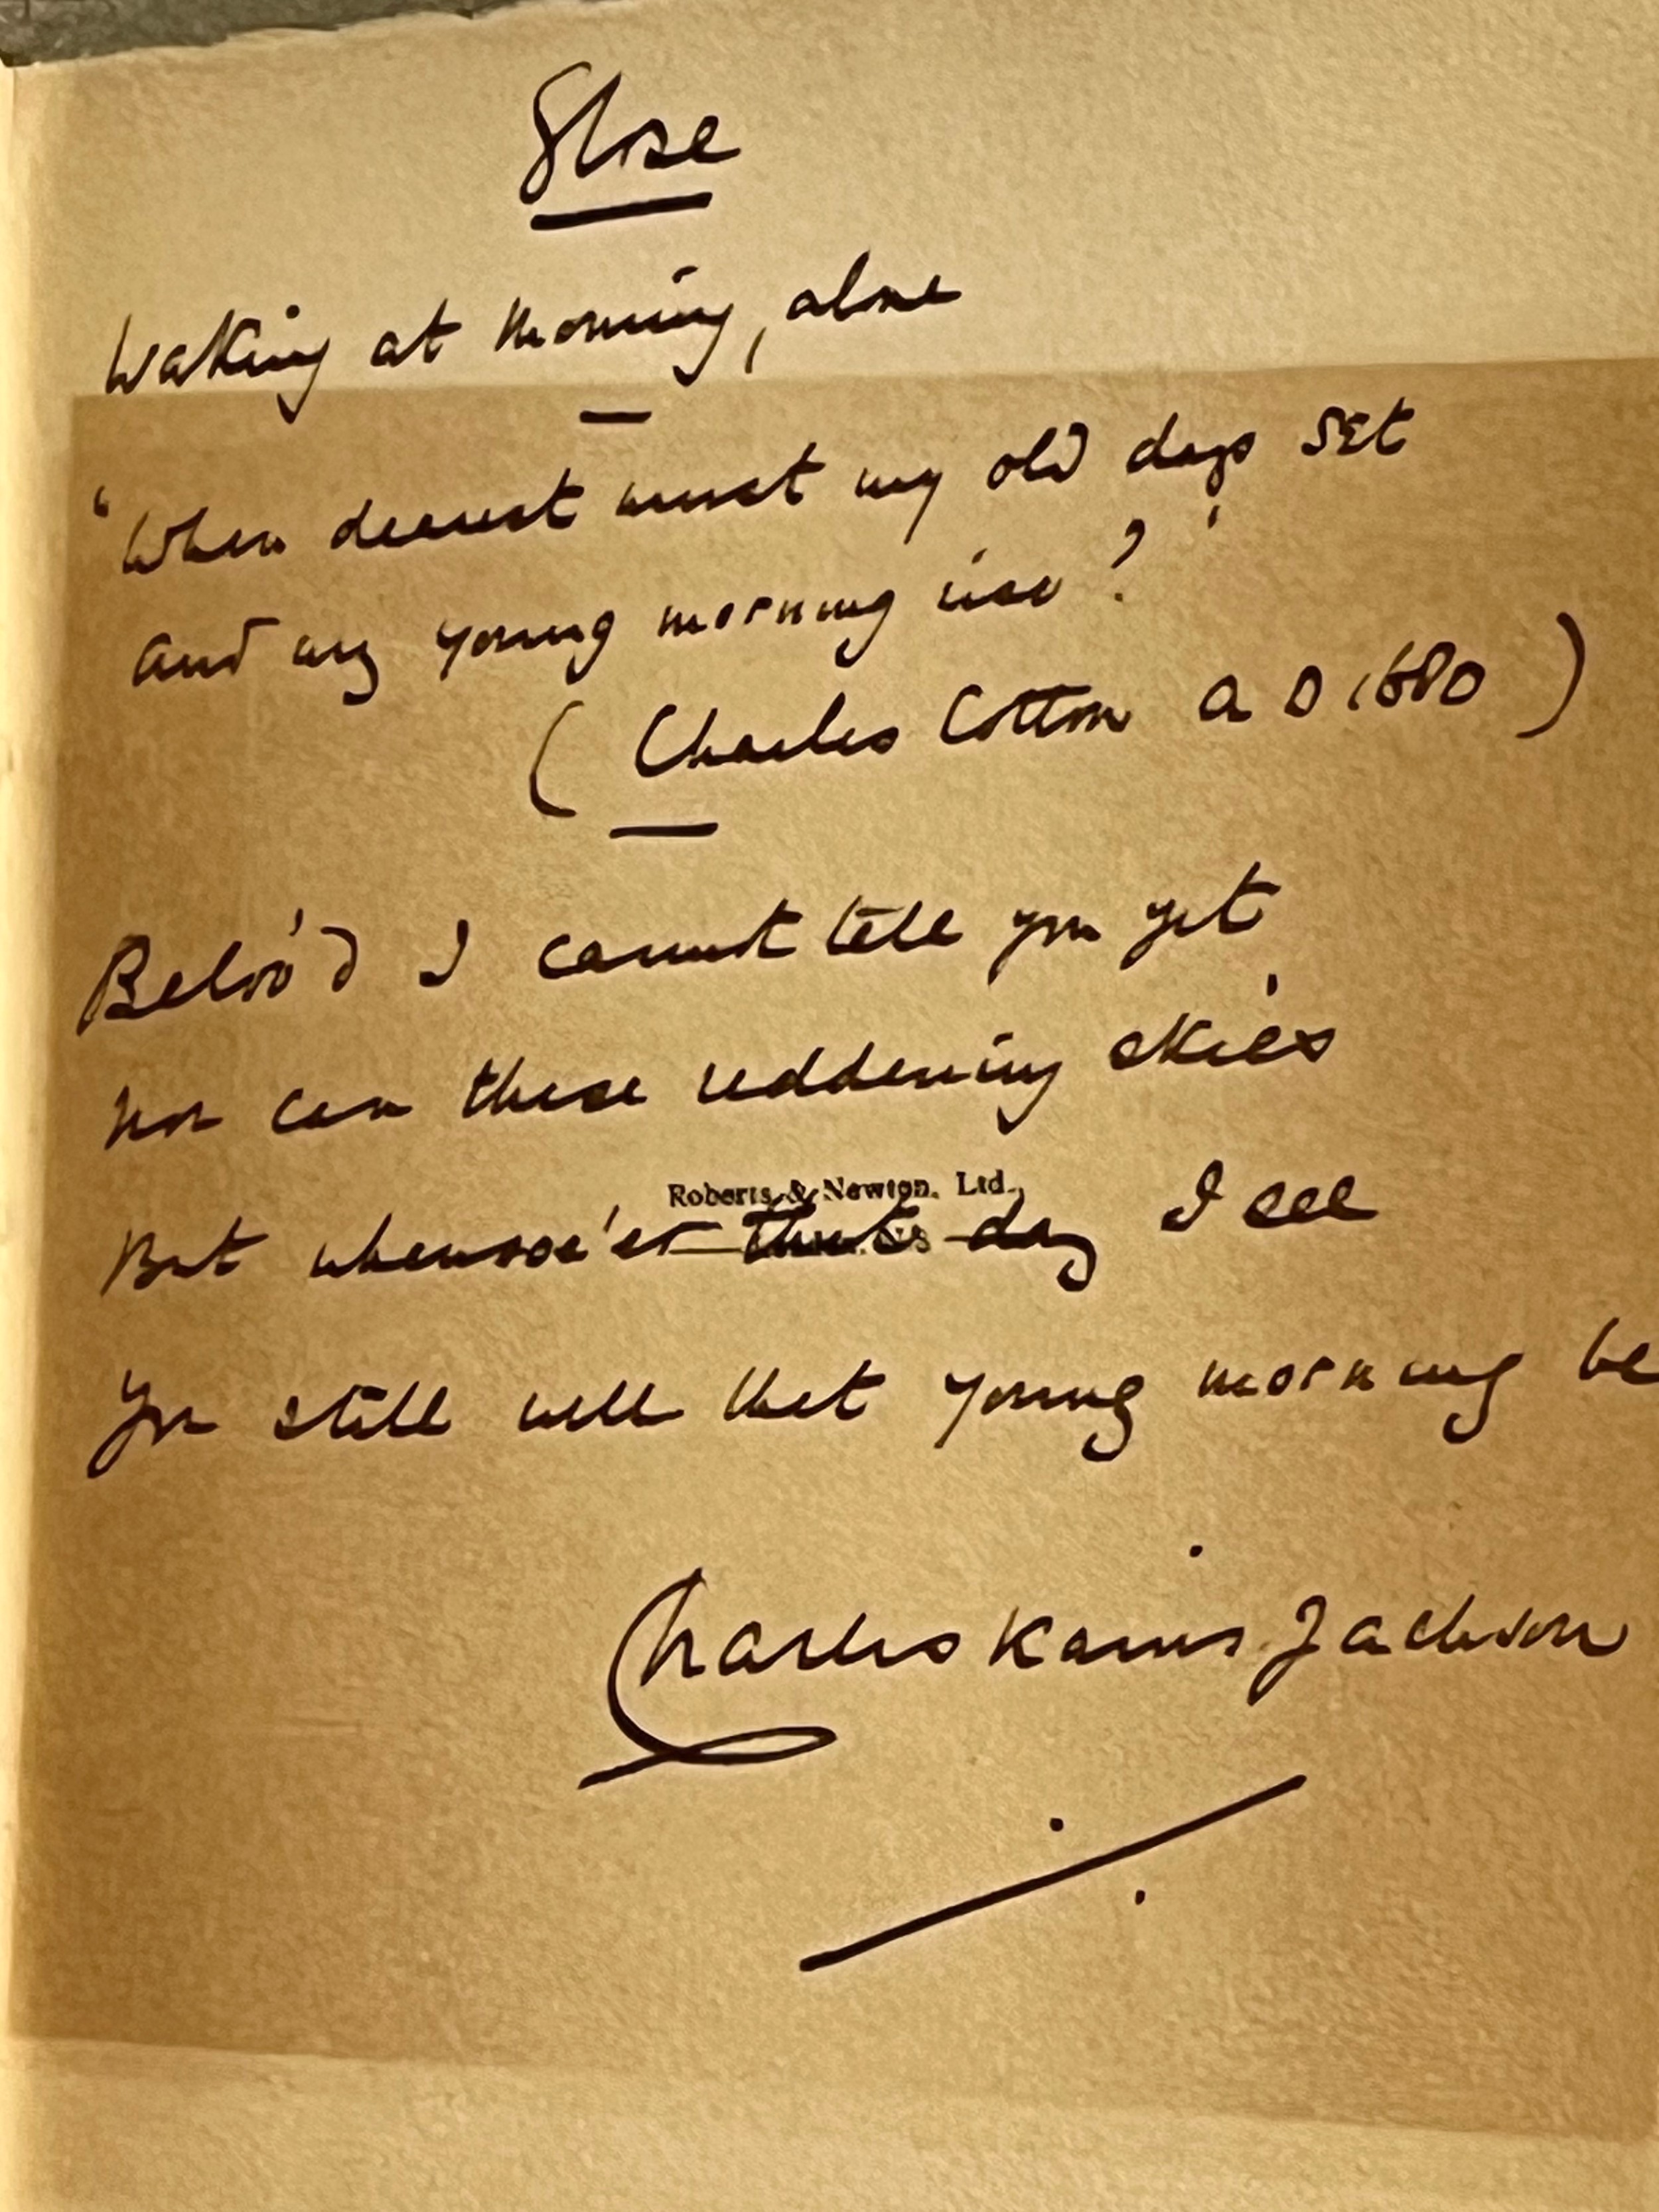 Glose
Waking at morning, alone
"When dearest must my old days set
and my young morning rise?"
(Charles Cotton AD 1680)
Belov'd I cannot tell you yet,
Nor can these reddening skies
Roberts & Newton, Ltd.,
But whensoe'er that day I see
You still will that young morning be
Charles Kains Jackson